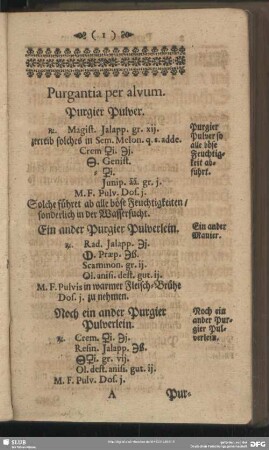 ( 1 )
Purgantia per alvum.
Purgier Pulver.
℞. Magist. Jalapp. gr. xij.
zertreib solches in Sem. Melon. q. s. adde.
Crem ℈j.
Genist.
Junip. āā. gr. j.
M. F. Pulv. Dos. j.
Solche führet ab alle böse Feuchtigkeiten/
sonderlich in der Wassersucht.
Purgier
Pulver so
alle böse
Feuchtig-
keit ab-
führt.
Ein ander Purgier Pulverlein.
Ein ander
Manier.
℞. Rad. Jalapp. ℈j.
Præp. ℈ß.
Scammon. gr. ij.
Ol. anis. dest. gut. ij.
M. F. Pulvis in warmer Fleisch-Brühe
Dos. j. zu nehmen.
Noch ein ander Purgier
Pulverlein.
Noch ein
ander Pur-
gier Pul-
verlein.
℞. Crem. ℈j.
Resin. Jalapp. ℈ß.
gr. vij.
Ol. dest. anis. gut. ij.
M. F. Pulv. Dos. j.
A Pur-
SLUB
DFG